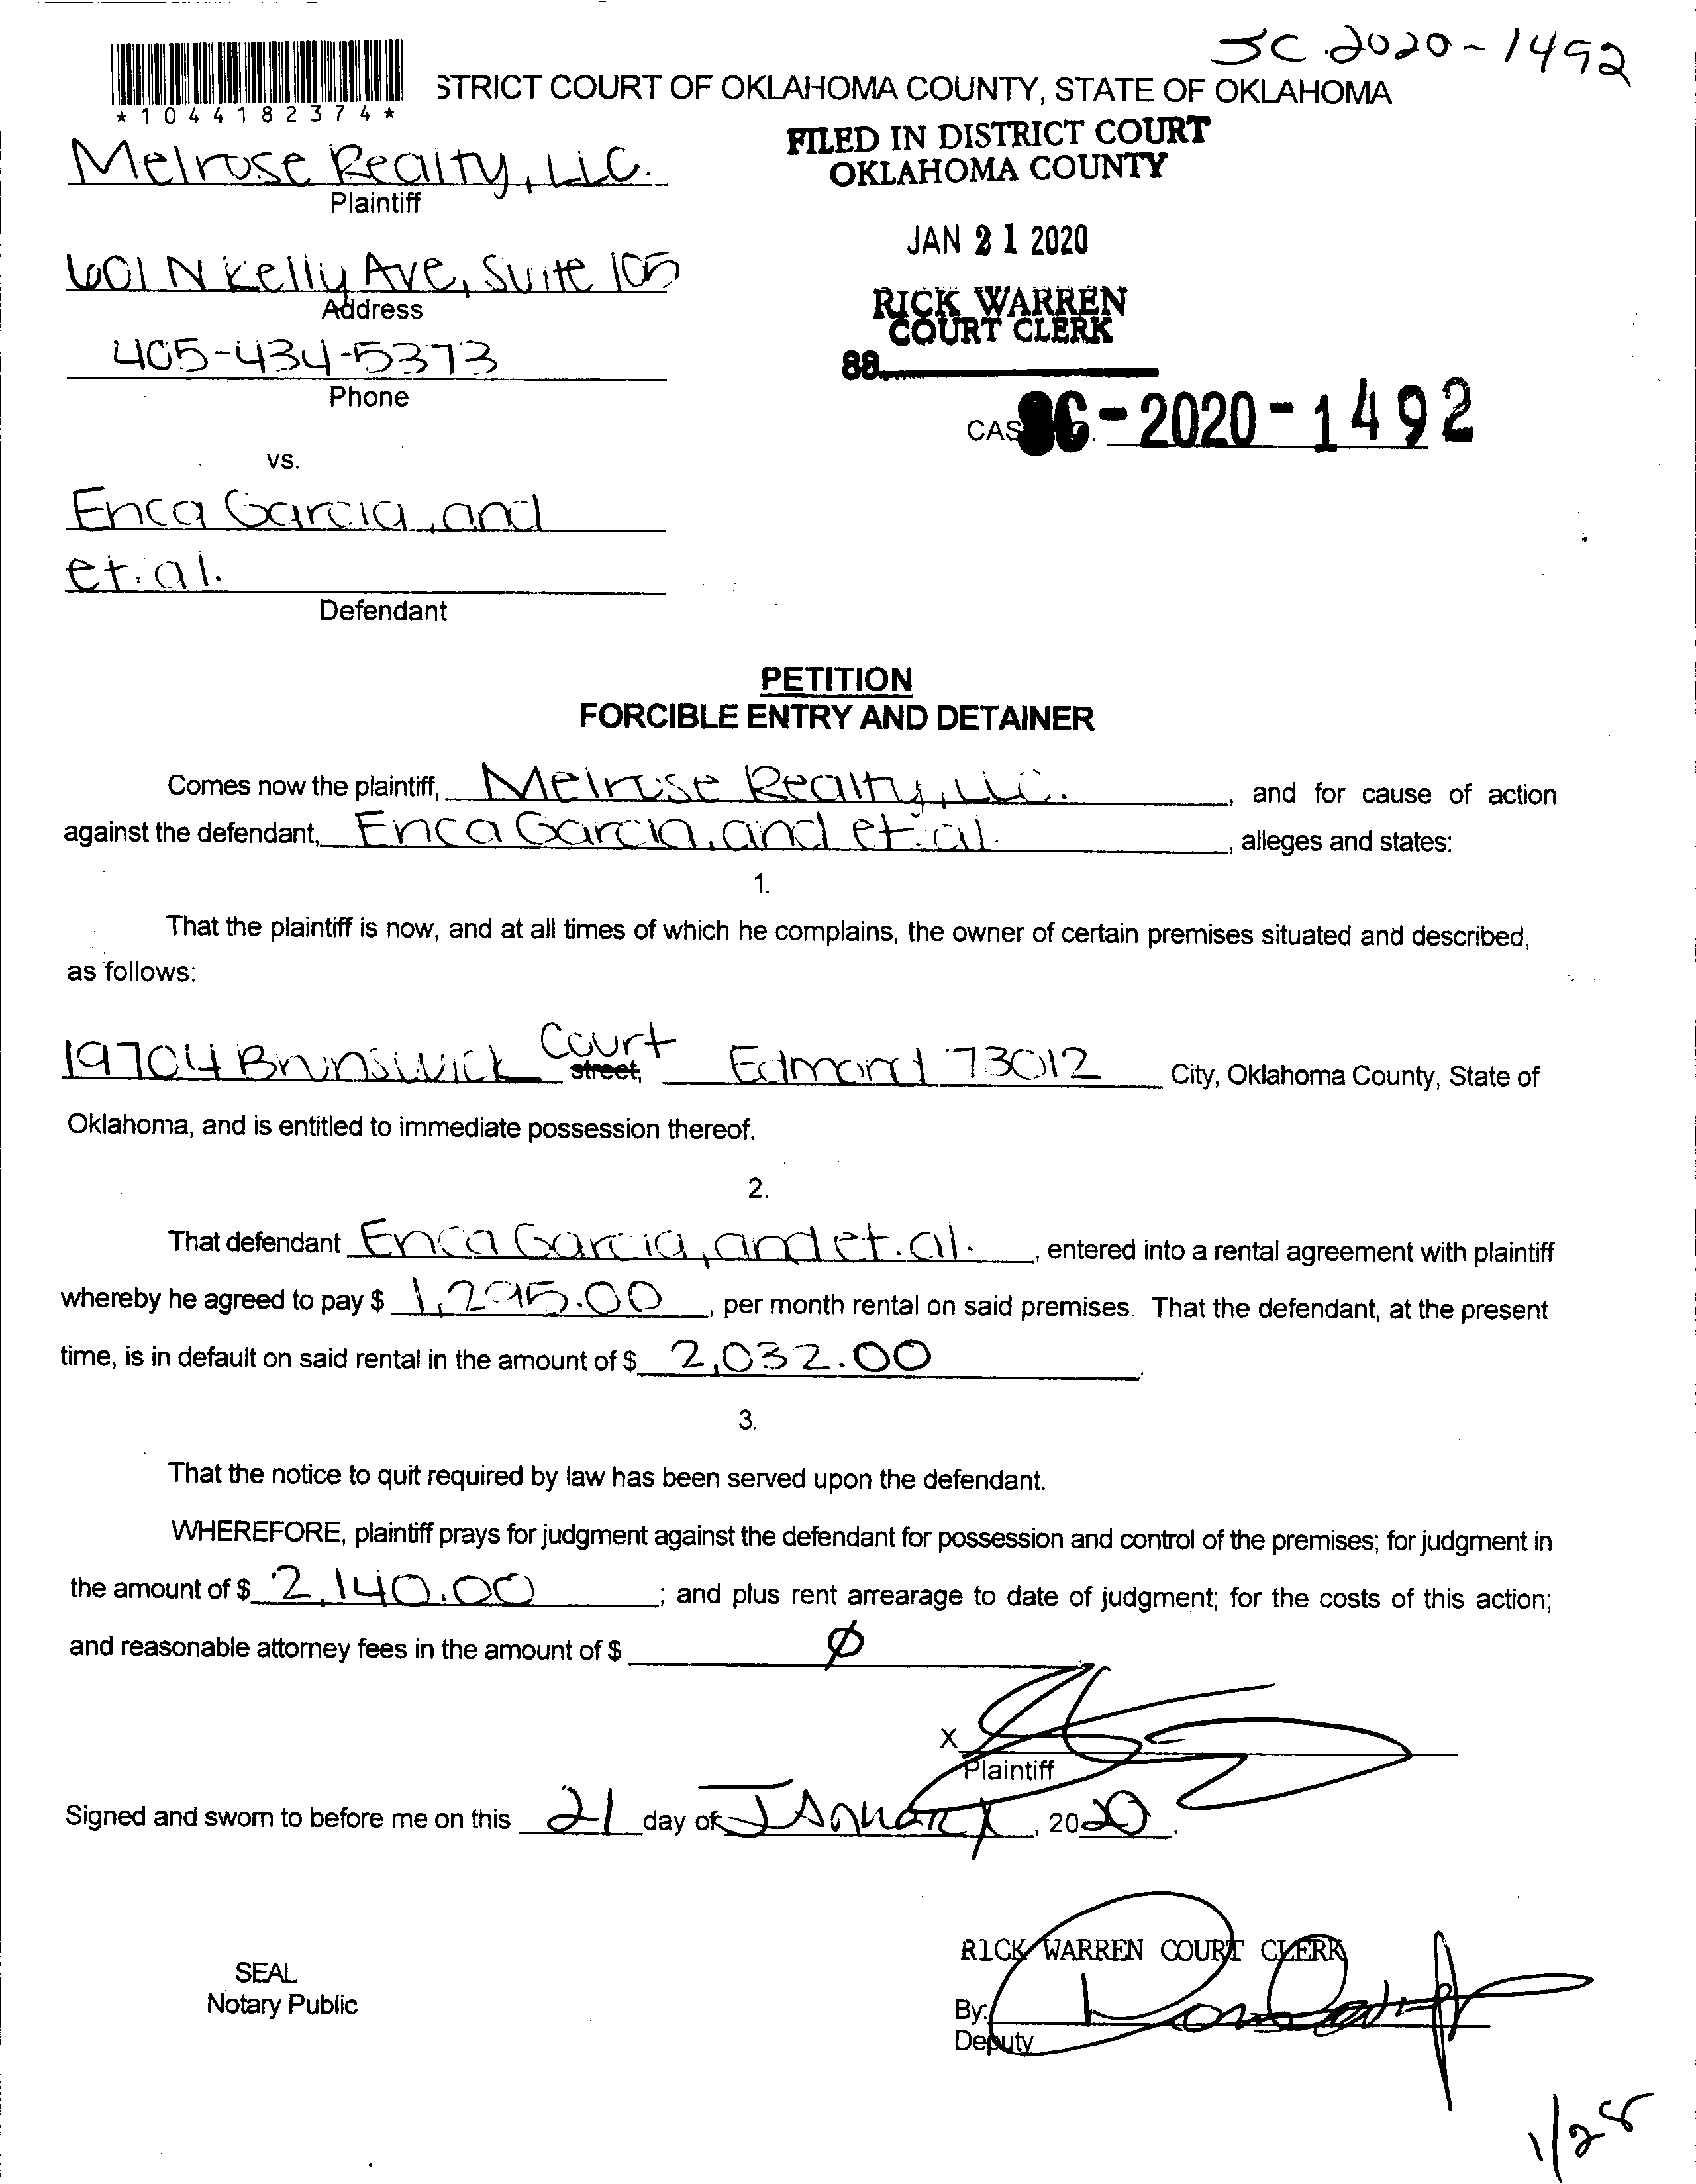 SC 2020-1492
STRICT COURT OF OKLAHOMA COUNTY, STATE OF OKLAHOMA
*1044182374*
FILED IN DISTRICT COURT
OKLAHOMA COUNTY
Melrose Realty, LLC.
Plaintiff
JAN 21 2020
601 N Kelly Ave, Suite 105
Address
RICK WARREN
COURT CLERK
405-434-5373
88
Phone
CAS SC-2020-1492
vs.
Erica Garcia, and
et. al.
Defendant
PETITION
FORCIBLE ENTRY AND DETAINER
Comes now the plaintiff, Melrose Realty, LLC. , and for cause of action
against the defendant, Erica Garcia, and et. al. , alleges and states:
1.
That the plaintiff is now, and at all times of which he complains, the owner of certain premises situated and described,
as follows:
19704 Brunswick Court street, Edmond 73012 City, Oklahoma County, State of
Oklahoma, and is entitled to immediate possession thereof.
2.
That defendant Erica Garcia, and et. al. , entered into a rental agreement with plaintiff
whereby he agreed to pay $ 1,295.00 , per month rental on said premises. That the defendant, at the present
time, is in default on said rental in the amount of $ 2,032.00 .
3.
That the notice to quit required by law has been served upon the defendant.
WHEREFORE, plaintiff prays for judgment against the defendant for possession and control of the premises; for judgment in
the amount of $ 2,140.00 ; and plus rent arrearage to date of judgment; for the costs of this action;
and reasonable attorney fees in the amount of $ Ø
X
Plaintiff
Signed and sworn to before me on this 21 day of January , 2020 .
RICK WARREN COURT CLERK
SEAL
Notary Public
By:
Deputy
1/28